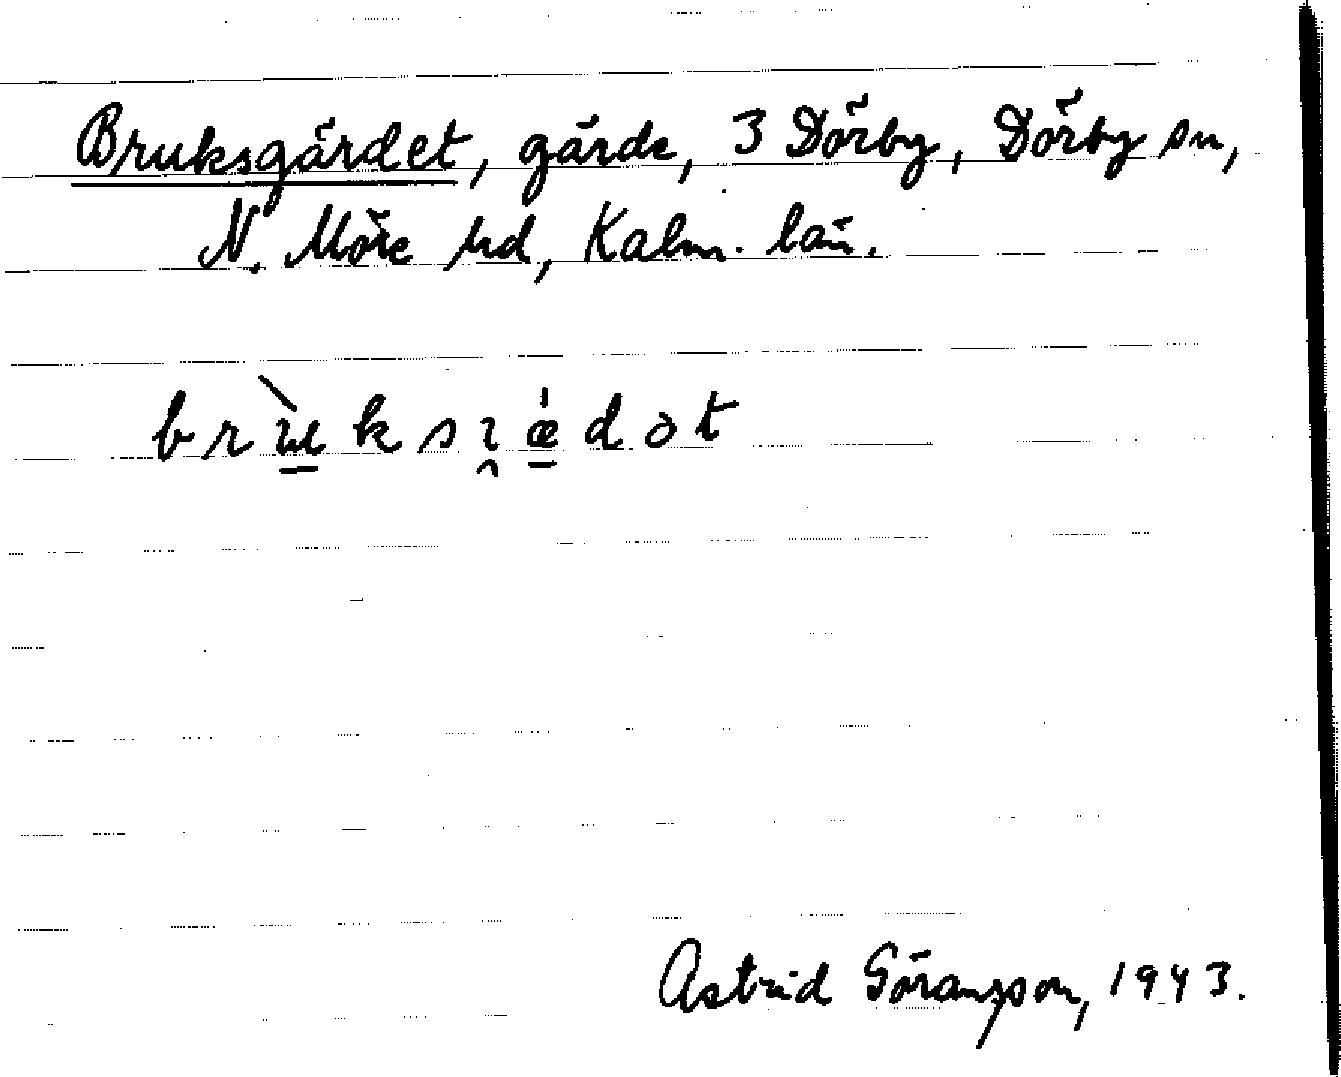 Bruksgärdet, gärde, 3 Dörby, Dörby sn,
N. Möre hd, Kalm. län.
Astrid Göransson, 1943.